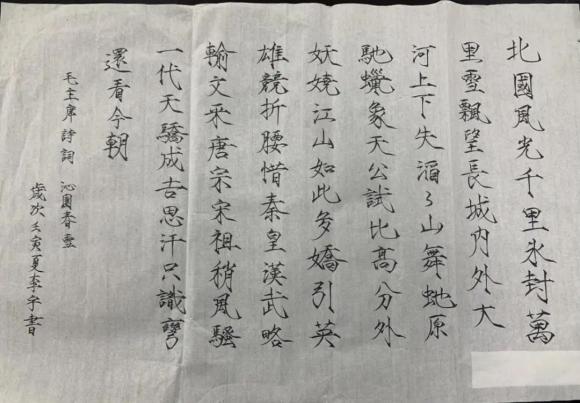 北國風光千里氷封萬
里雪飄望長城内外大
河上下失滔〻山舞虵原
馳蠟象天公試比高分外
妖嬈江山如此多嬌引英
雄競折腰惜秦皇漢武略
輸文采唐宗宋祖稍風騷
一代天驕成吉思汗只識彎
還看今朝
毛主席詩詞 沁園春雪
歲次壬寅夏李宇書